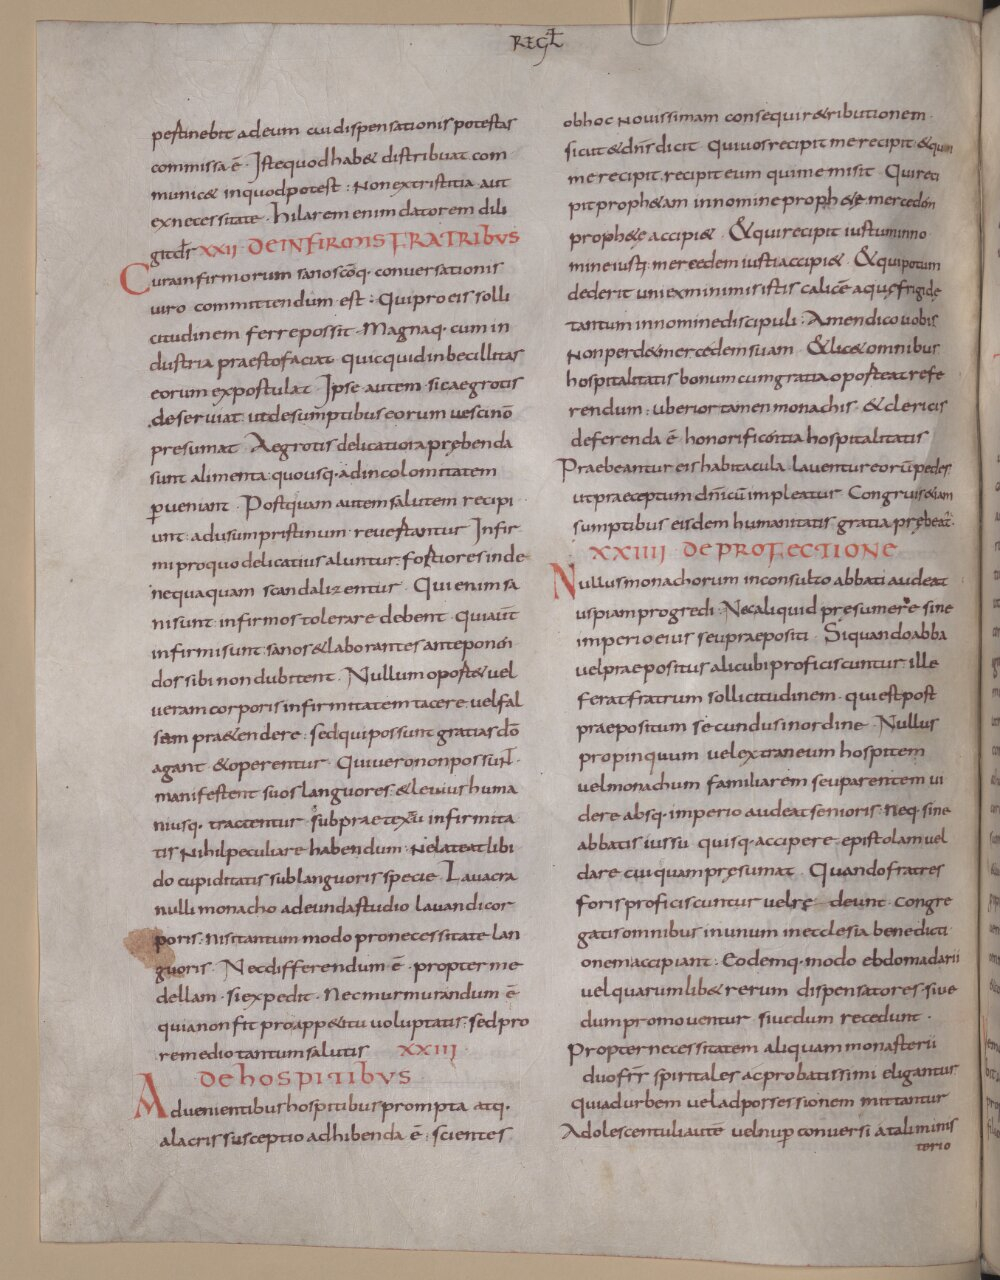 REGL̄
pestinebit adeum cui dispensationis potestas
commissa ē. Iste quod hab& distribuat com
munic& inquod potest : Non ex tristitia aut
ex necessitate. hilarem enim datorem dili
git d̄s XXII DE INFIRMIS FRATRIBVS
Cura infirmorum sano scōq. conversationis
uiro committendum est : Qui pro eis solli
citudinem ferre possit. Magnaq. cum in
dustria praesto faciat quicquid inbecillitas
eorum expostulat. Ipse autem sic aegrotis
deseruiat ut de sumptibus eorum uesci nō
presumat Aegrotis delicatiora prębenda
sunt alimenta quousq. ad incolomitatem
ꝑueniant. Postquam autem salutem recipi
unt. ad usum pristinum reuertantur Infir
mi pro quo delicatius aluntur. fortiores inde
nequaquam scandalizentur. Qui enim sa
ni sunt infirmos tolerare debent. Qui aut̄
infirmi sunt sanos & laborantes anteponen
dos sibi non dubitent. Nullum oport& uel
ueram corporis infirmitatem tacere uel fal
sam pra&endere : sed qui possunt gratias dō
agant & operentur. Qui uero non possunt.
manifestent suos languores. & leuius huma
niusq. tractentur. sub praetextu infirmita
tis Nihil peculiare habendum. Ne lateat libi
do cupiditatis sub languoris specie Lauacra
nulli monacho adeunda studio lauandi cor
poris. nisi tantum modo pro necessitate lan
guoris. Nec differendum ē. propter me
dellam. si expedit. Nec murmurandum ē
quia non fit pro app&itu uoluptatis. sed pro
remedio tantum salutis XXIII
DE HOSPITIBVS
Aduenientibus hospitibus prompta atq.
alacris susceptio adhibenda ē. scientes
ob hoc Nouissimam consequi r&ributionem.
sicut & dn̄s dicit. Qui uos recipit me recipit. & qui
me recipit. recipit eum qui me misit. Qui reci
pit proph&am in nomine proph&ę mercedem
proph&ę accipi& & qui recipit iustum in no
mine iusti. mercedem iusti accipi& & qui potum
dederit uni ex minimis istis calicē aquę frigidę
tantum in nomine discipuli. Amen dico uobis
Non perd& mercedem suam & lic& omnibus
hospitalitatis bonum cum gratia oporteat refe
rendum : uberior tamen monachis & clericis
deferenda ē honorificentia hospitalitatis
Praebeantur eis habitacula. lauentur eorū pedes
ut praeceptum dn̄icū impleatur. Congruis &iam
sumptibus eisdem humanitatis gratia prębeat̄.
XXIIII DE PROFECTIONE
Nullus monachorum inconsulto abbati audeat
uspiam progredi. Nec aliquid presumere sine
imperio eius seu praepositi. Si quando abba
uel praepositus alicubi proficiscuntur ille
ferat fratrum sollicitudinem. qui est post
praepositum secundus in ordine Nullus
propinquum uel extraneum hospitem
uel monachum familiarem seu parentem ui
dere absq. imperio audeat senioris. neq. sine
abbatis iussu quisq. accipere epistolam uel
dare cuiquam pręsumat. Quando fratres
foris proficiscuntur uel rę deunt congre
gatis omnibus in unum in ecclesia benedicti
onem accipiant : Eodemq. modo ebdomadarii
uel quarumlib& rerum dispensatores. siue
dum promouentur siue dum recedunt.
Propter necessitatem aliquam monasterii
duo fr̄r spiritales ac probatissimi eligantur
qui ad urbem uel ad possessionem mittantur
Adolescentuli autē uel nuꝑ conuersi a tali minis
terio